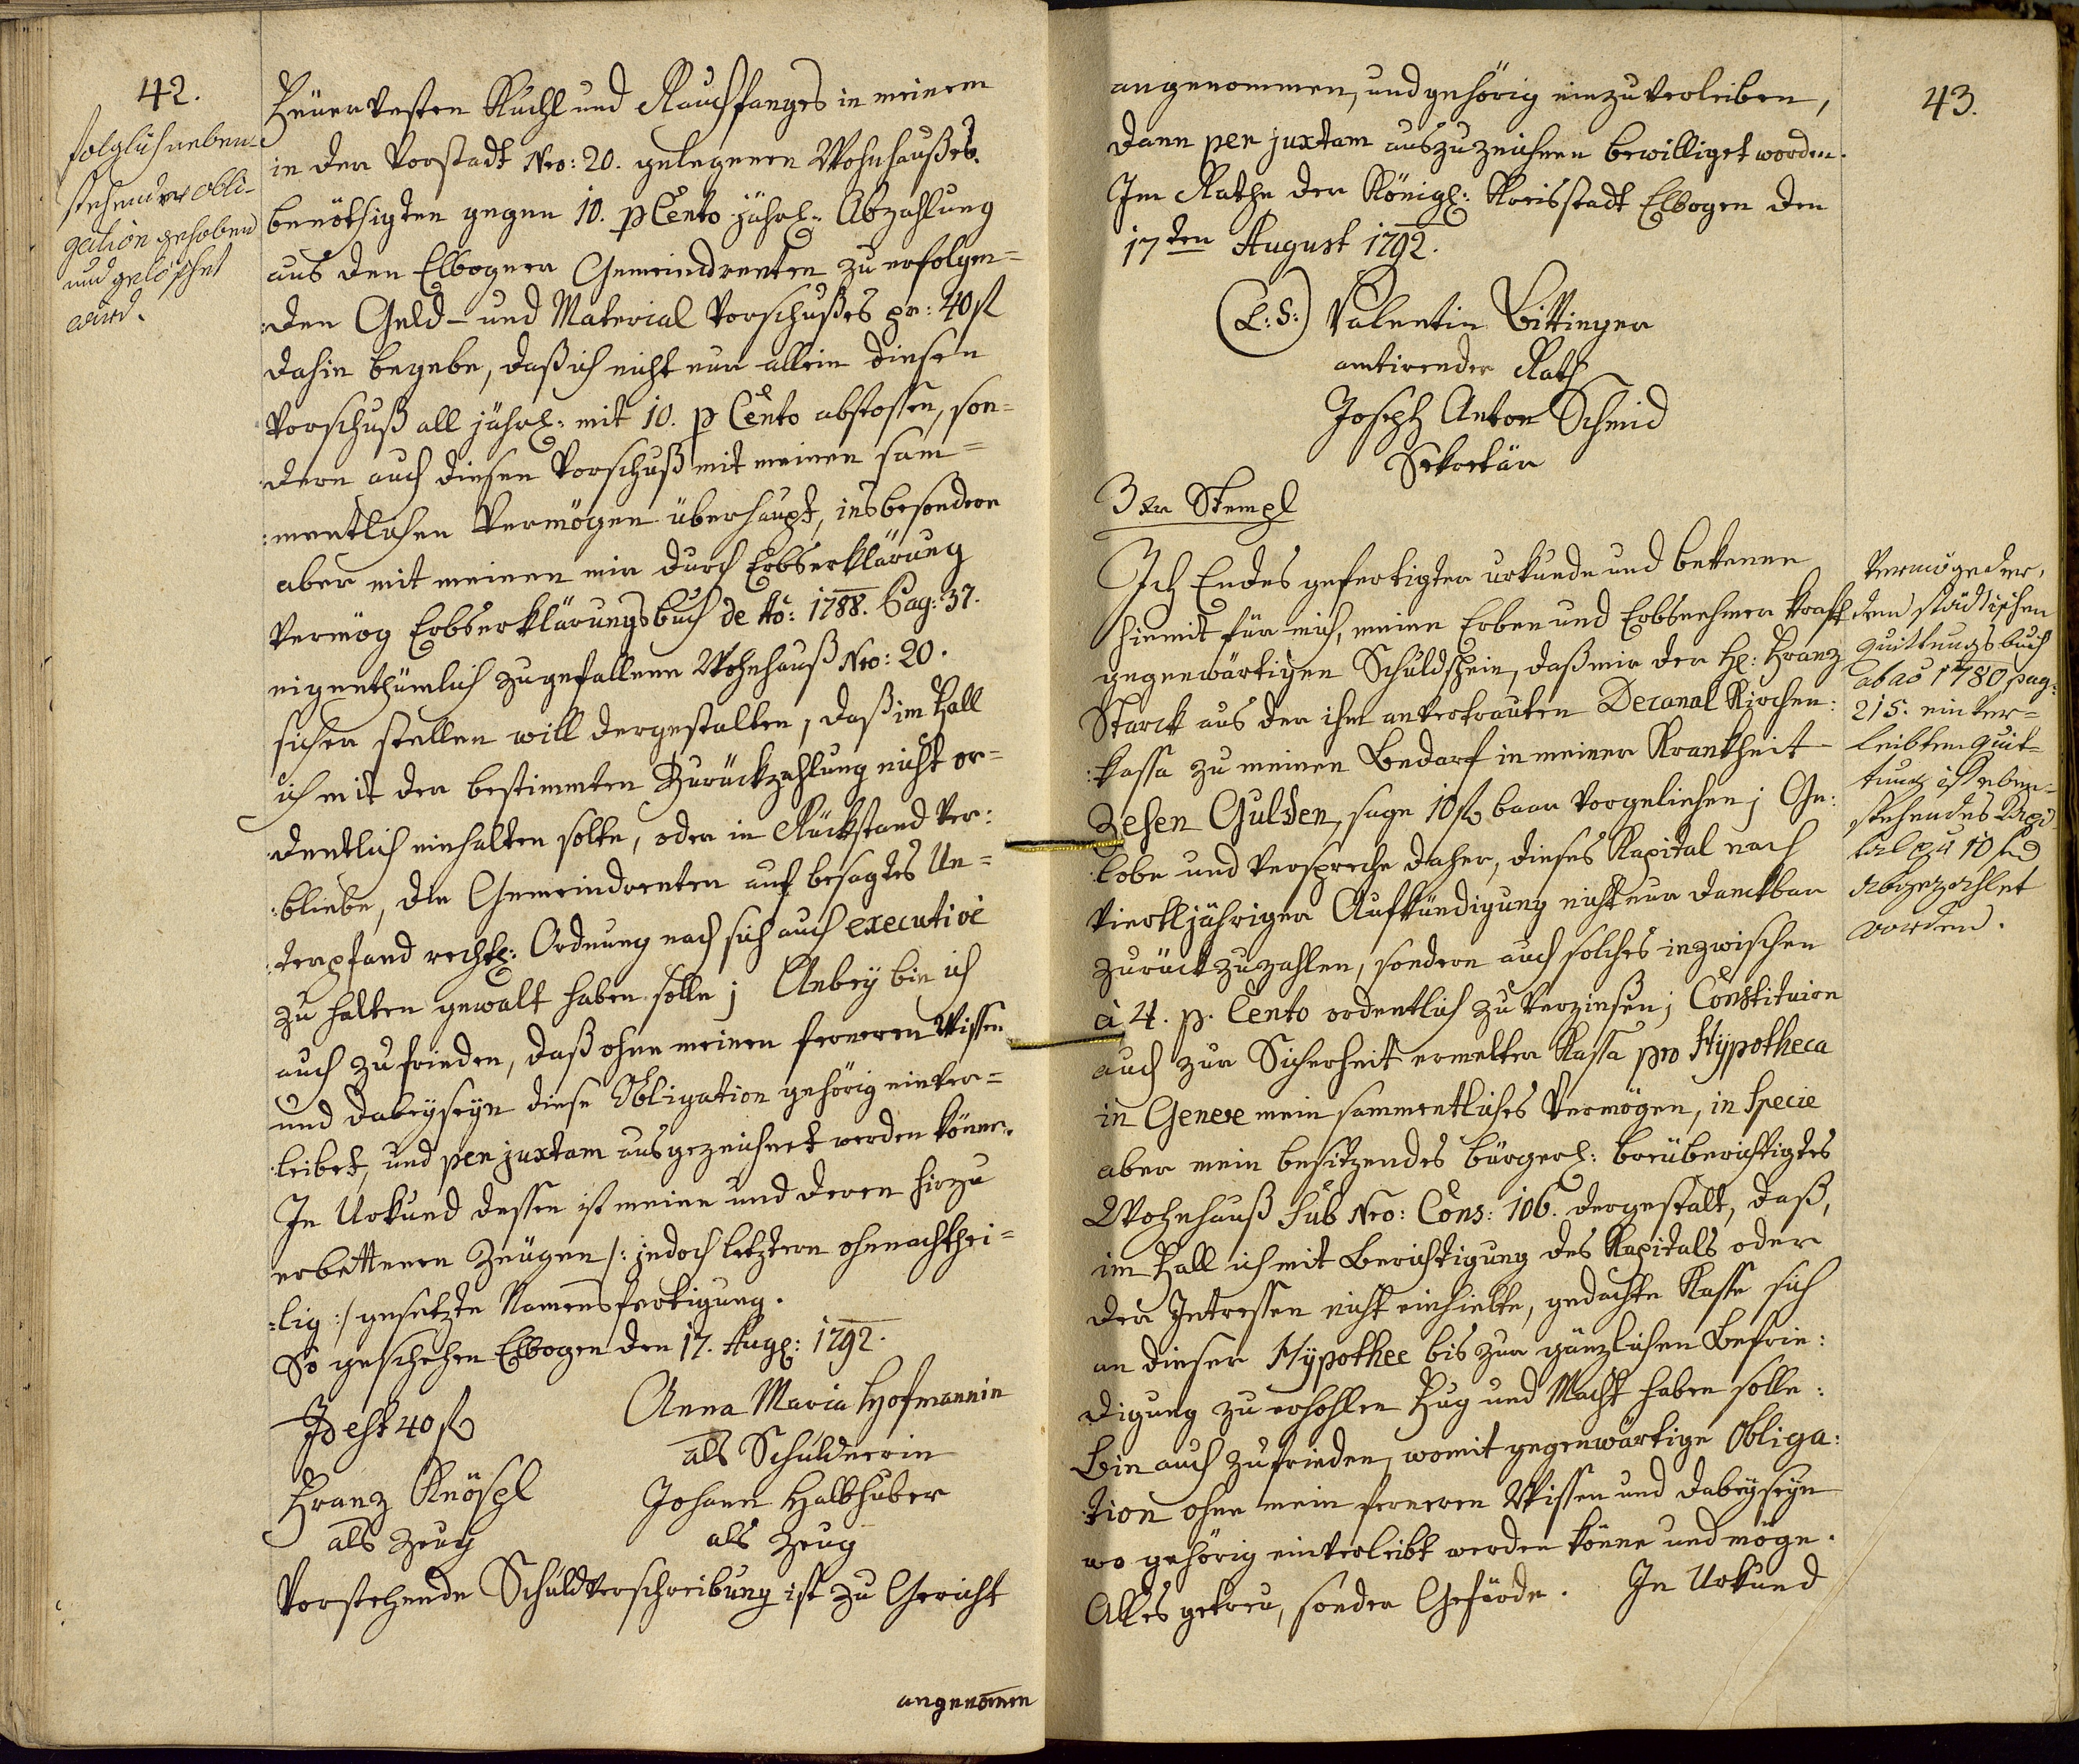 42.
folglich neben-
stehende obli-
gation gehoben
und gelöschet
wird.
Feüervesten Kuchl und Rauchfanges in meinem
in der Vorstadt Nro: 20. gelegenen Wohnhaußes
benöthigten gegen 10. p Cento jährl: Abzahlung
aus den Elbogner Gemeindrenten zu erfolgen=
:den Geld- und Material Vorschußes pr: 40 fl
dahin begebe, daß ich nicht nur allein diesen
Vorschuß all jährl: mit 10. p Cento abstossen, son=
:dern auch diesen Vorschuß mit meinen sam=
:mentlichen Vermögen überhaupt, insbesondere
aber mit meinen mir durch Erbserklärung
vermög Erbserklärungsbuch de Ao: 1788. Pag: 37.
eigenthümlich zugefallene Wohnhauß Nro: 20.
sicher stellen will dergestalten, daß im Fall
ich mit der bestimmten Zurückzahlung nicht or=
:dentlich einhalten solte, oder in Rückstand ver:
:bliebe, die Gemeindrenten auf besagtes Un=
:terpfand rechtl: Ordnung nach sich auch executivè
zu halten gewalt haben solle; Anbey bin ich
auch zufrieden, daß ohne meinen ferneren Wissen
und dabeyseyn diese Obligation gehörig einver=
:leibet, und per juxtam ausgezeichnet werden könne.
In Urkund dessen ist meine und deren hirzu
erbettenen Zeügen /: jedoch letztern ohnnachthei=
=lig :/ gesetzte Namensfertigung.
So geschehen Elbogen den 17. Augl: 1792.
Id est 40 fl
Anna Maria Hofmannin
als Schuldnerin
Franz Knöspl
als Zeug
Johann Halbhuber
als Zeug
Vorstehende Schuldverschreibung ist zu Gericht
angenomen
43.
angenommen, und gehörig einzuverleiben,
dann per juxtam auszuzeichnen bewilliget worden.
Im Rathe der Königl: Kreisstadt Elbogen den
17ten August 1792.
(L: S:) Valentin Bittinger
amtirender Rath
Joseph Anton Schmid
Sekretär
3 xr Stempl
Ich Endes gefertigter urkunde und bekenne
hiemit für mich, meine Erben und Erbnehmer kraft
gegenwärtigen Schuldschein, daß mir der H: Franz
Starck aus der ihm anvertrauten Decanal Kirchen:
:kassa zu meinen Bedarf in meiner Krankheit
Zehen Gulden, sage 10 fl baar vorgeliehen; Ge:
:lobe und verspreche daher, dieses Kapital nach
vierteljähriger Aufkündigung nicht nur danckbar
zurückzuzahlen, sondern auch solches inzwischen
à 4. p. Cento ordentlich zu verzinßen; Constituire
auch zur Sicherheit ermelter Kassa pro Hypotheca
in Genere mein sammentliches Vermögen, in Specie
aber mein besitzendes bürgerl: breüberichtigtes
Wohnhauß sub Nro: Cons: 106. dergestalt, daß,
im Fall ich mit Berichtigung des Kapitals oder
der Intressen nicht einhielte, gedachte Kasse sich
an dieser Hypothec bis zur gänzlichen Befrie:
:digung zu erhohlen Fug und Macht haben solle:
Bin auch zufrieden, womit gegenwärtige Obliga:
:tion ohne mein ferneren Wissen und dabeyseyn
wo gehörig einverleibt werden könne und möge.
Alles getreu, sonder Gefärde. In Urkund
Vermög der,
dem städtischen
quittungsbuch
ab ao 1780 pag:
215. einver=
leibten quit=
tung ist neben-
stehendes Kapi
tal pr 10 fl
abgezahlet
worden.